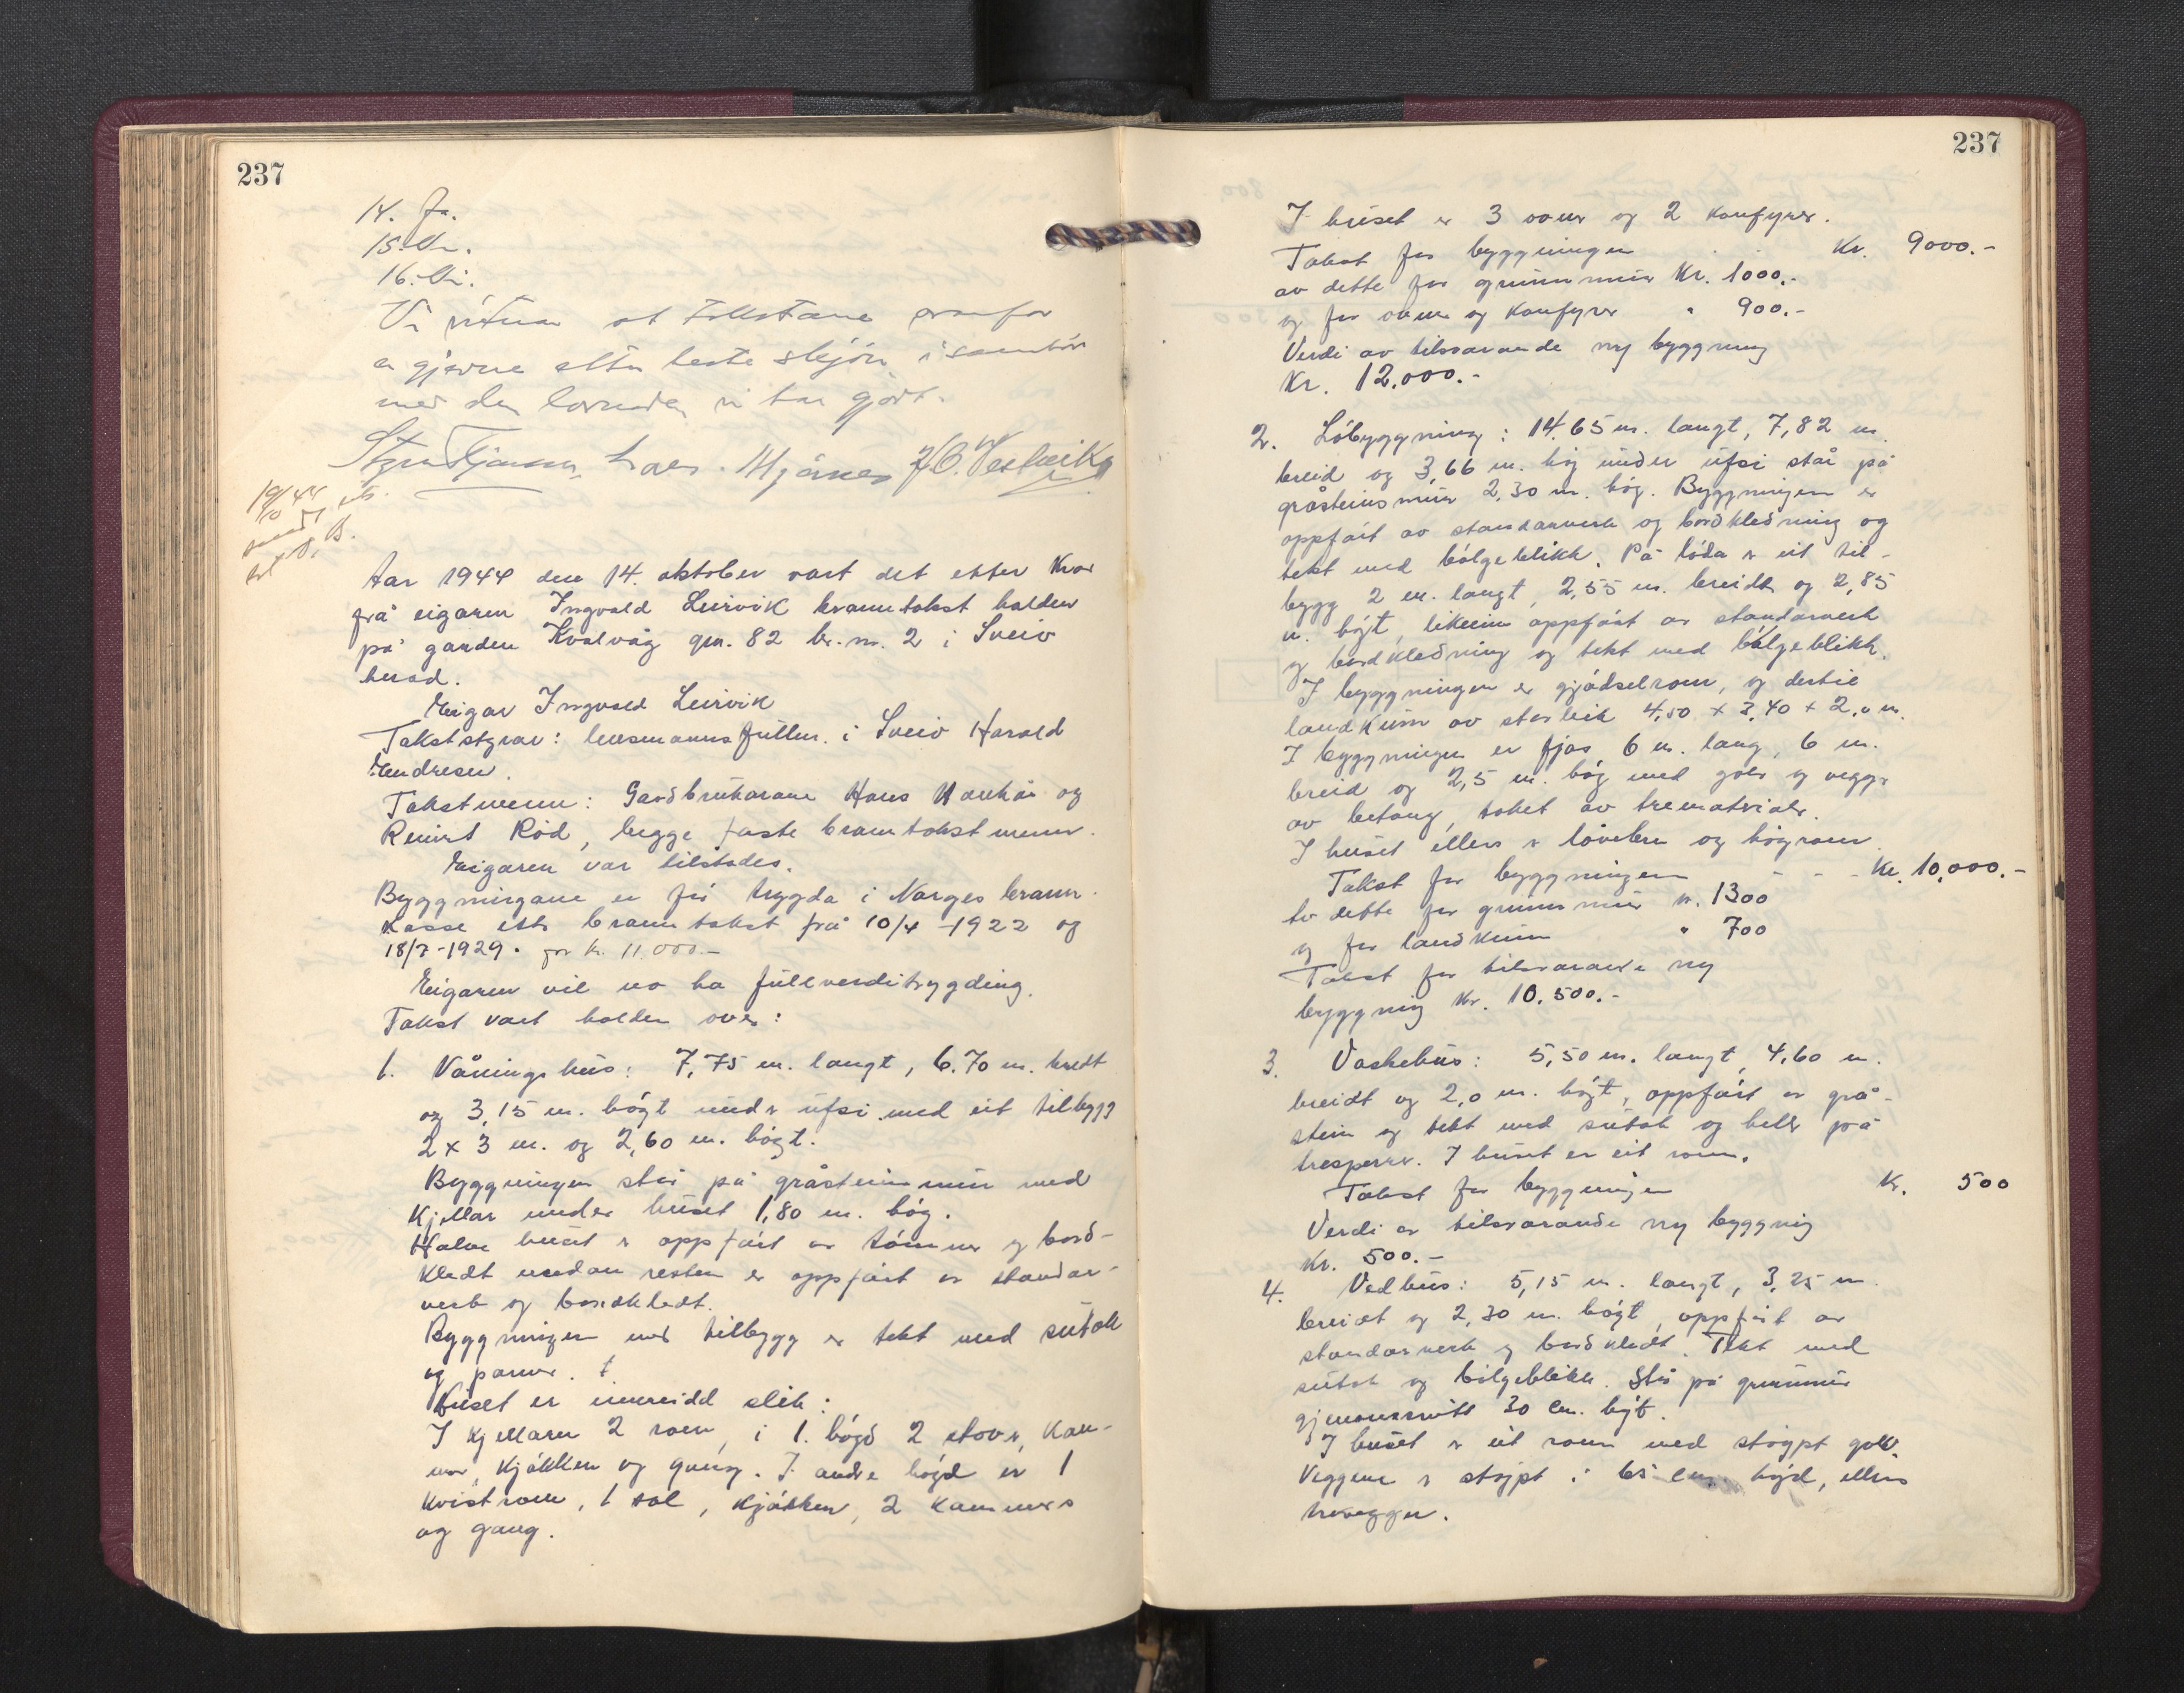 237
14. Ja.
15. Nei.
16. Nei.
Vi vitnar at takstane ovanfor
er gjevne etter beste skjön i samhöve
med den lovnaden vi har gjort.
Lars. Mjånes J. O. Vestvik
19/10 44
sendt
Aar 1944 den 14. oktober vart det etter krav
frå eigaren Ingvald Leirvik branntakst halden
på garden Kvalvåg gnr. 82 br. nr. 2 i Sveio
herad.
Eigar Ingvald Leirvik
Takststyrar: lensmannsfullm. i Sveio Harald
Endresen.
Takstmenn: Gardbrukarane Hans Haukås og
Reinert Röd, begge faste branntakstmenn.
Eigaren var tilstades.
Byggningane er för trygda i Norges brann-
kasse etter branntakst frå 10/4 -1922 og
18/7-1929. for kr. 11.000.-
Eigaren vil no ha fullverditrygding.
Takst vart halden over:
1. Våningshus: 7,75 m. langt, 6.70 m. bredt
og 3,15 m. högt under ufsi med eit tilbygg
2 x 3 m. og 2,60 m. högt.
Byggningen står på gråsteinsmur med
kjellar under huset 1,80 m. hög.
Halve huset er oppfört av tömmer og bord-
kledt medan resten er oppfört av standar-
verk og bordkledt.
Byggningen med tilbygg er tekt med sutak
og panner.
Huset er innreidd slik:
I kjellaren 2 rom, i 1. högd 2 stover, kam-
mer, kjökken og gang. I andre högd er 1
kvistrom, 1 sal, kjökken, 2 kammers
og gang.
237
I huset er 3 ovner og 2 komfyrer.
Takst for byggningen Kr. 9000.-
av dette for grunnmur Kr. 1000.-
og for ovner og komfyrer " 900.-
Verdi av tilsvarande ny byggning
Kr. 12.000.-
2. Löbyggning: 14.65 m. langt, 7,82 m.
breid og 3,66 m. hög under ufsi står på
gråsteinsmur 2,30 m. hög. Byggningen er
oppfört av standarverk og bordkledning og
tekt med bölgeblikk. På löda er eit til-
bygg 2 m. langt, 2,55 m. breidt og 2,85
m. högt, likeeins oppfört av standarverk
og bordkledning og tekt med bölgeblikk.
I byggningen er gjödselrom, og dertil
landkum av storleik 4,50 x 3,40 x 2,0 m.
I byggningen er fjös 6 m. lang, 6 m.
breid og 2,5 m. hög med golv og vegger
av betong, taket av trematrialer.
I huset ellers er lövebru og högrom.
Takst for byggningen - - - Kr. 10,000.-
Av dette for grunnmur kr. 1300
og for landkum " 700
Takst for tilsvarande ny
byggning Kr. 10.500.-
3. Vaskehus: 5,50 m. langt, 4,60 m.
breidt og 2,0 m. högt, oppfört av grå-
stein og tekt med sutak og heller på
tresperrer. I huset er eit rom.
Takst for byggningen Kr. 500
Verdi av tilsvarande ny byggning
Kr. 500.-
4. Vedhus: 5,15 m. langt, 3,25 m.
breidt og 2,30 m. högt, oppfört av
standarverk og bordkledt. Tekt med
sutak og bölgeblikk. Står på grunnmur
gjenomsnitt 30 cm. högt.
I huset er eit rom med stöypt golv.
Veggene er stöypt i 65 cm. höjd, ellers
trevegger.